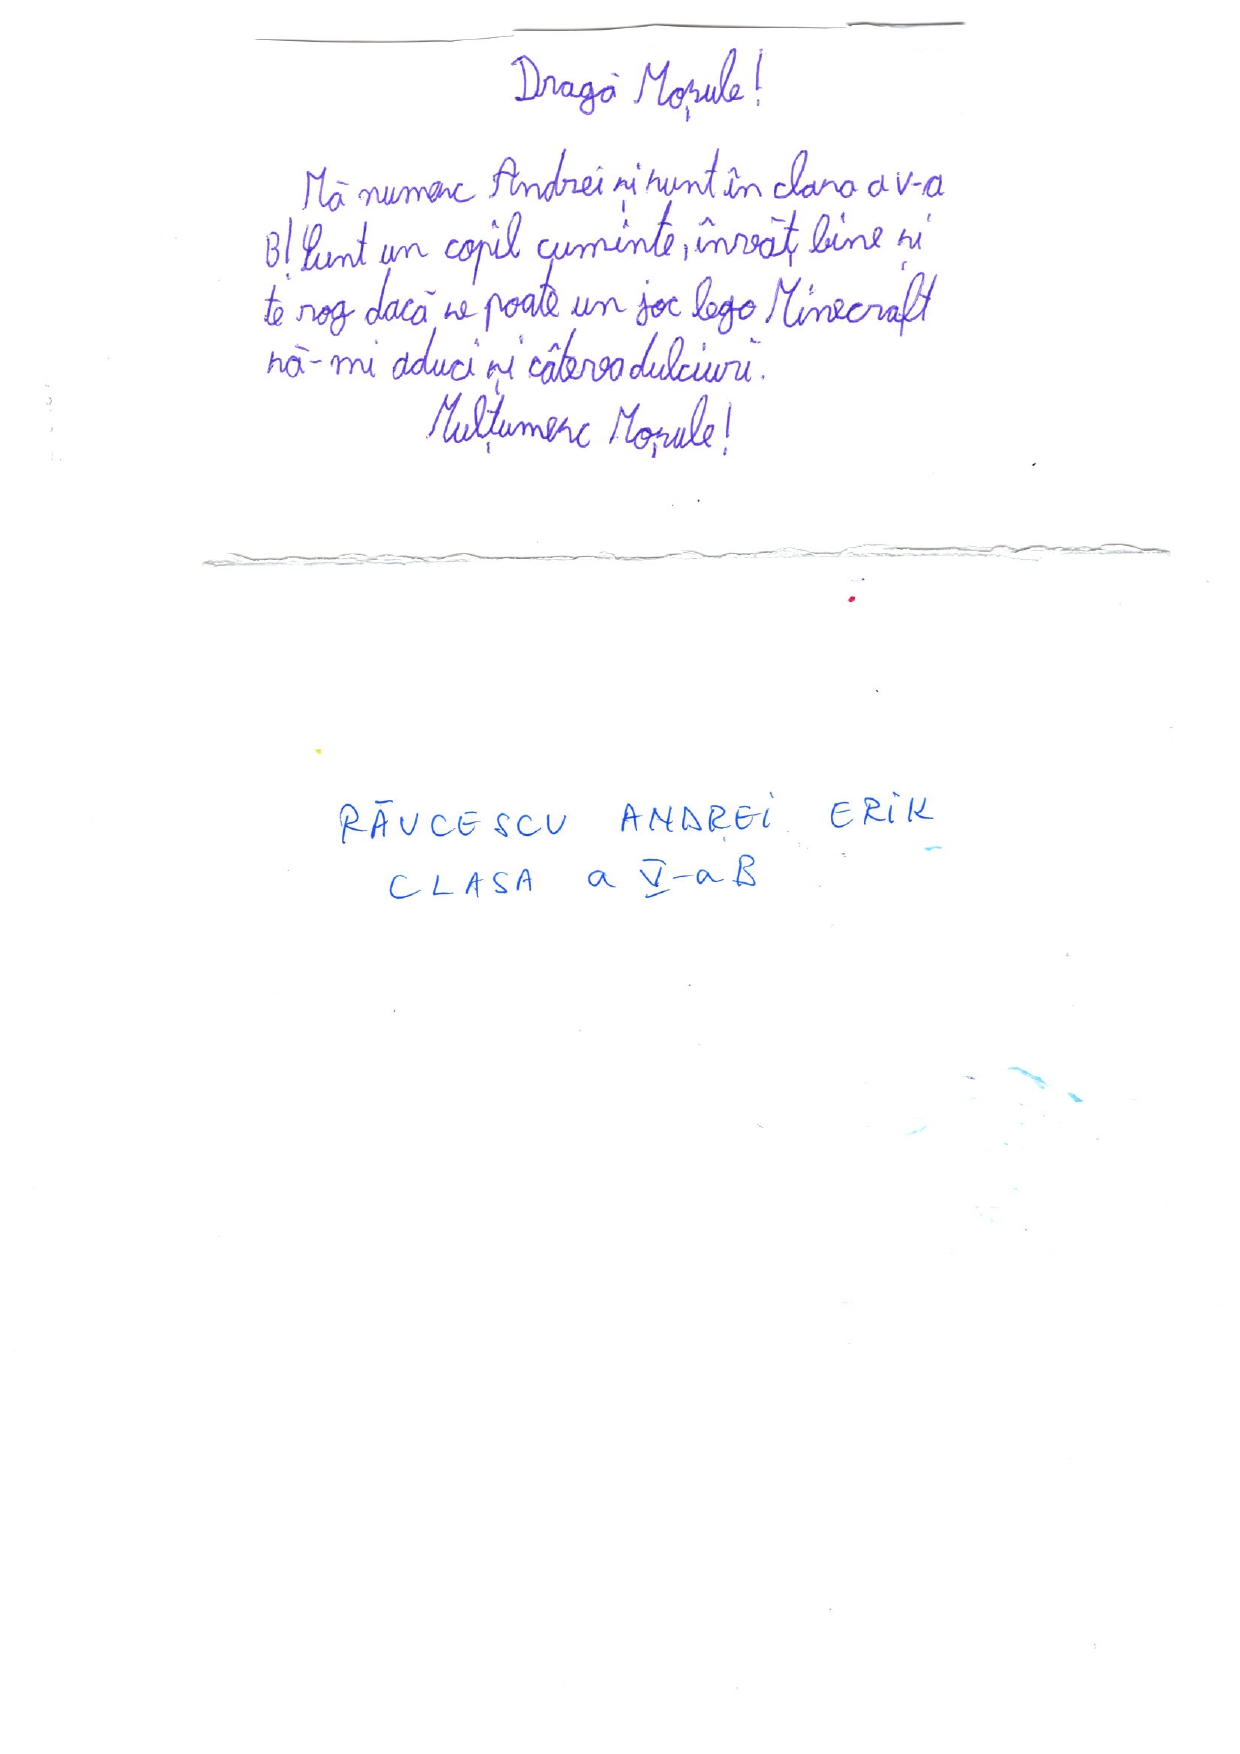 Dragă Moșule!
Mă numesc Andrei și sunt în clasa a V-a
B! Sunt un copil cuminte, învăț bine și
te rog dacă se poate un joc lego Minecraft
să-mi aduci și câteva dulciuri.
Mulțumesc Moșule!
RĂUCESCU ANDREI ERIK
CLASA a V-a B